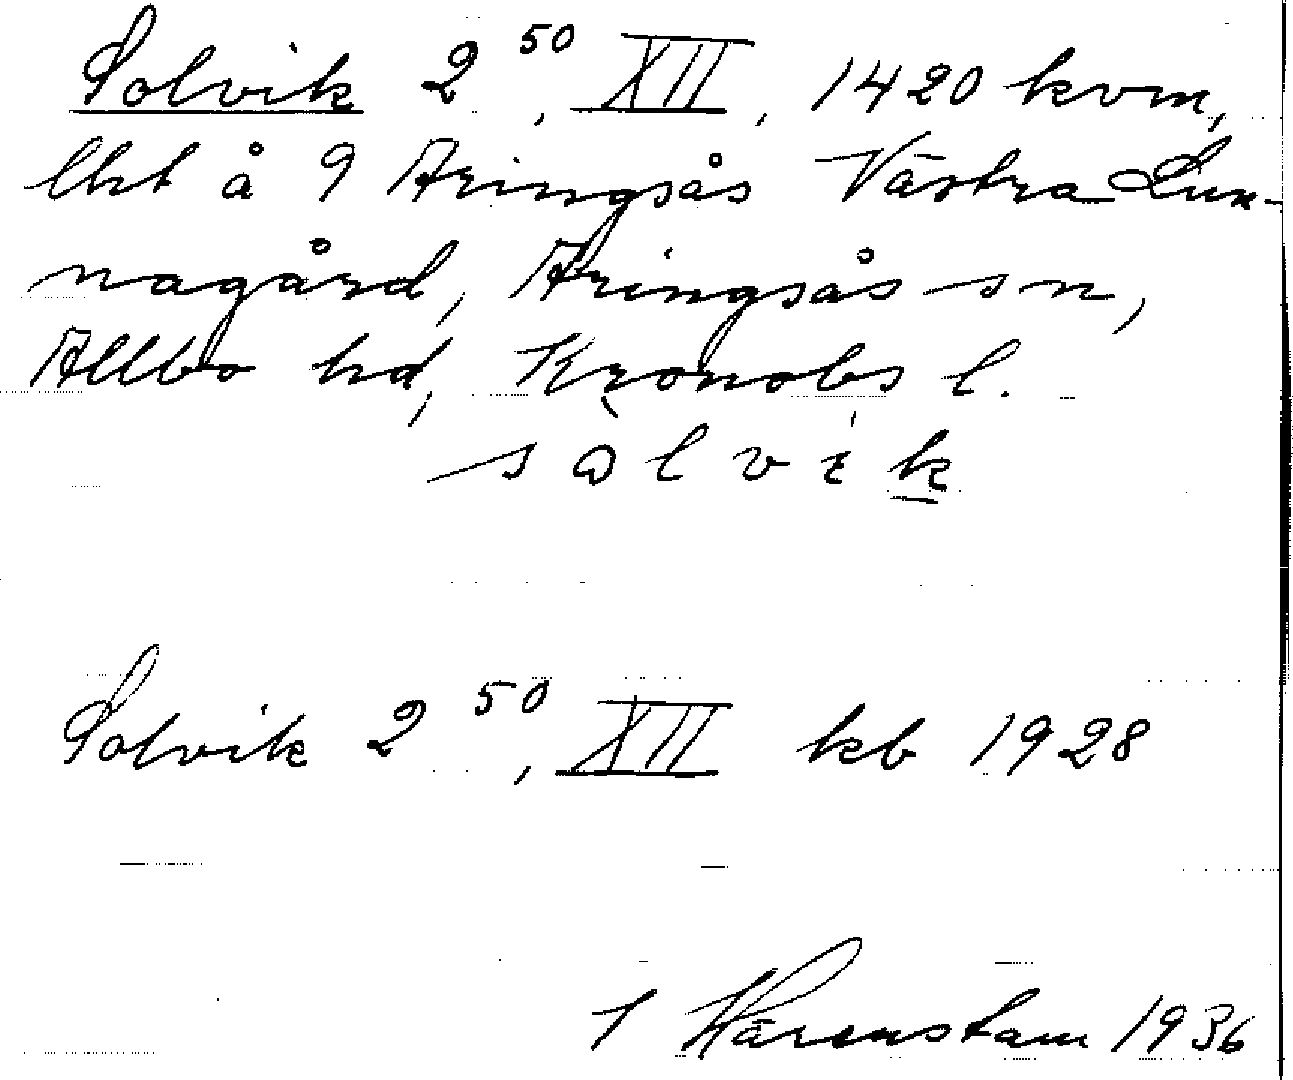 Solvik 2⁵⁰, XII, 1420 kvm,
lht å 9 Aringsås Västra Lun-
nagård, Aringsås sn,
Allbo hd, Kronobs l.
solvik
Solvik 2⁵⁰, XII kb 1928
I Härenstam 1936